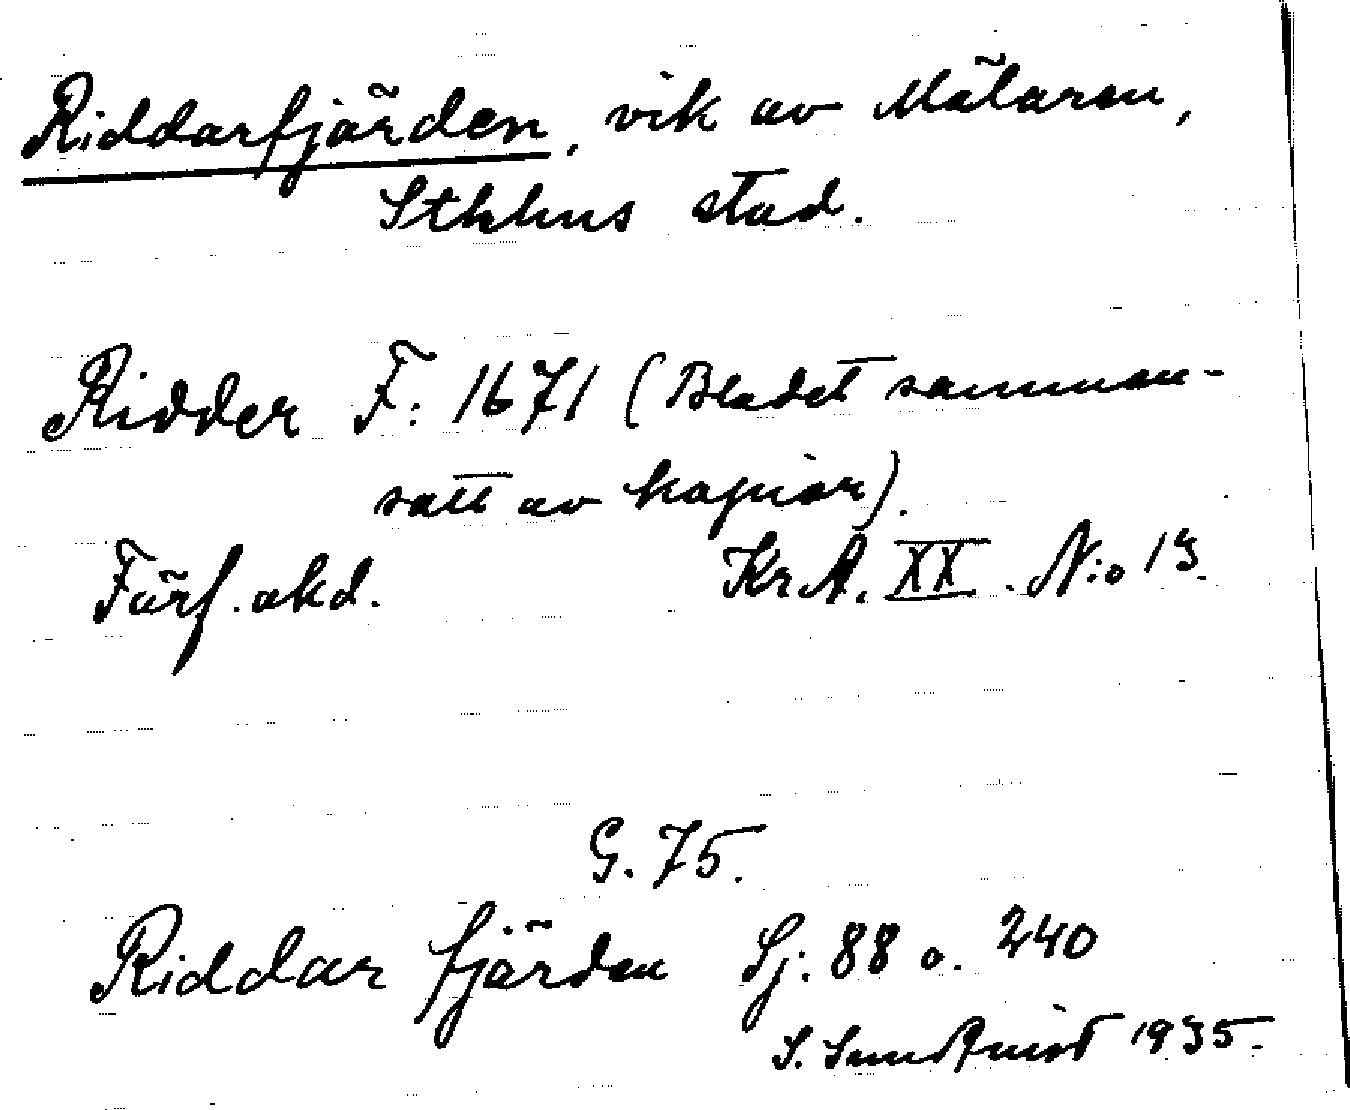 Riddarfjärden, vik av Mälaren,
Sthlms stad.
Ridder F: 1671 (Bladet samman-
satt av kopior).
Förf. okd. Kr. A. XX. N:o 13.
G. 75.
Riddar fjärden Sj: 88 o. 240
S. Sundqvist 1935.